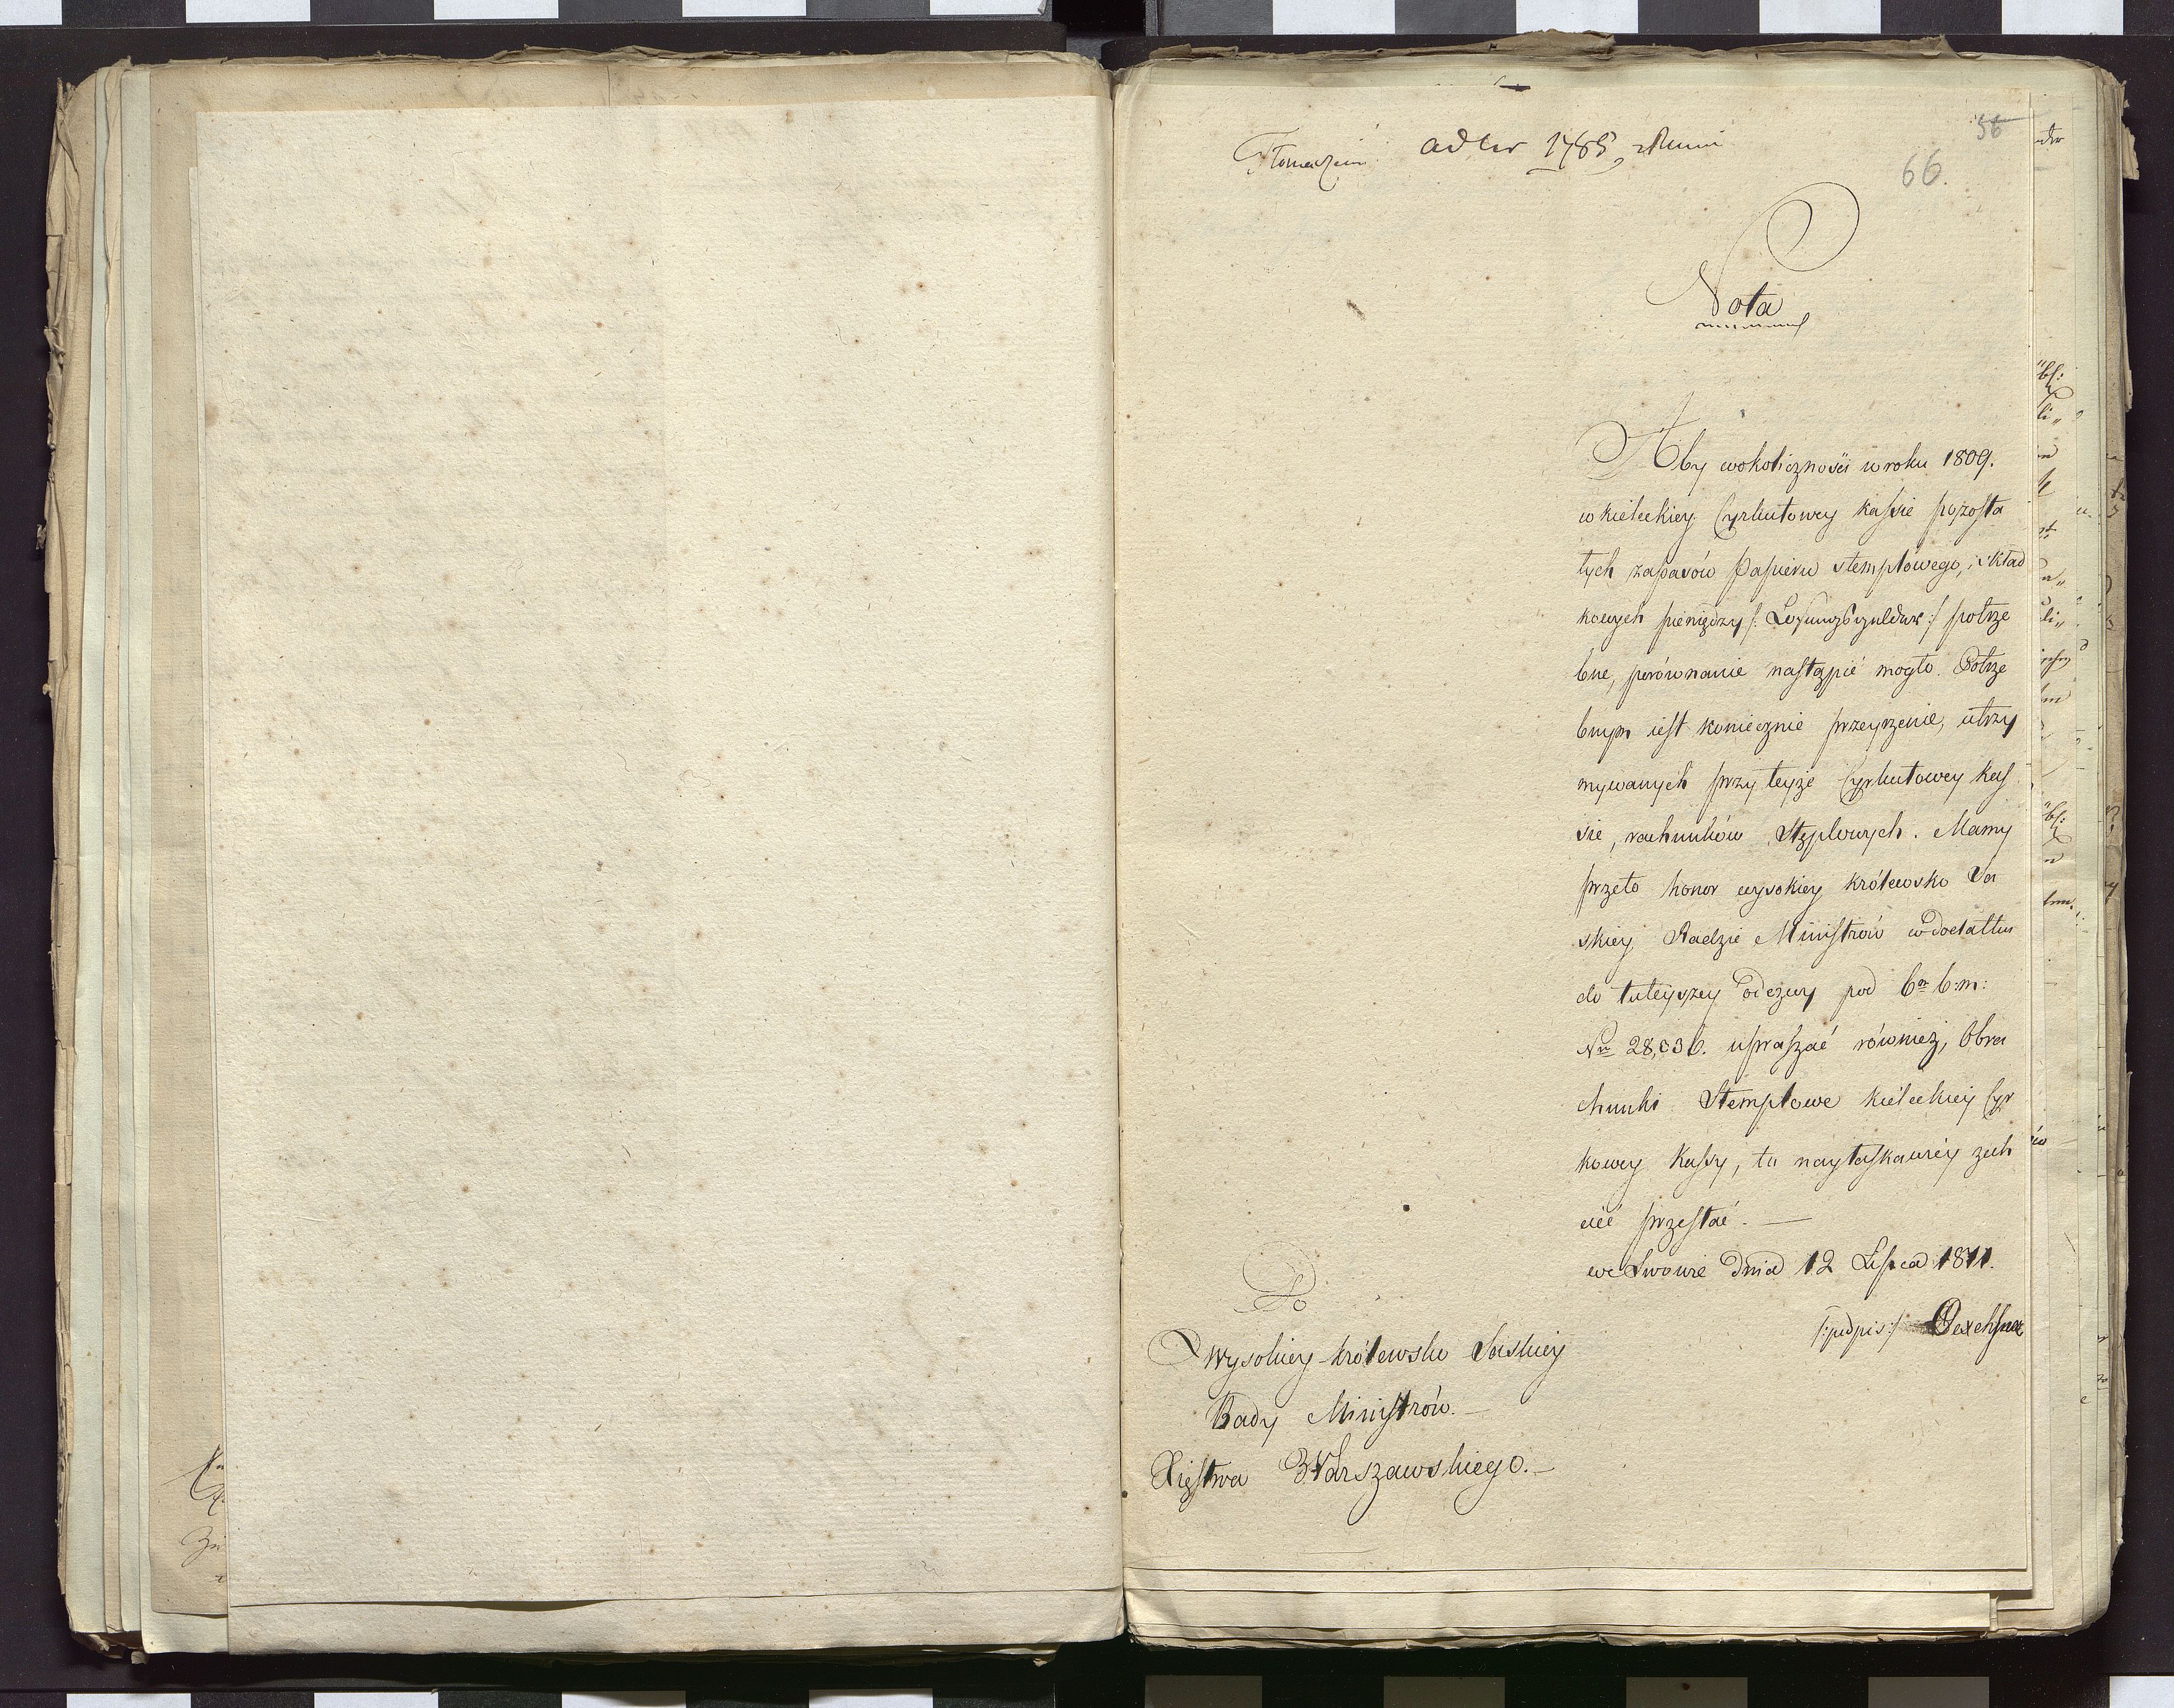 56
Tłomaczenie ad Nr 1785,
66.
Nota
Aby wokoliczności w roku 1809.
w kieleckiey Cyrkutowey kassie pozosta
łych zapasów Papieru stemplowego, i skład
kowych pieniędzy /: :/ potrze
bne, porównanie nastąpić mogło. Potrze
bnym iest koniecznie przeyrzenie, utrzy
mywanych przy teyże Cyrkutowey kas
sie, rachunków Stęplowych. Mamy
przeto honor wysokiey królewsko Sa
skiey Radzie Ministrów w dodatku
do tuteyszey odezwy pod 6ym b:m:
Nro 28,036. upraszać również, Obra
chunki Stemplowe kieleckiey Cyr
kowey Kassy, tu nayłaskawiéy zech
cieć przesłać. —
we Lwowie Dnia 12 Lipca 1811.
/:podpis:/
Do
Wysokiey królewsko Saskiey
Rady Ministrów. —
Xięstwa Warszawskiego. —